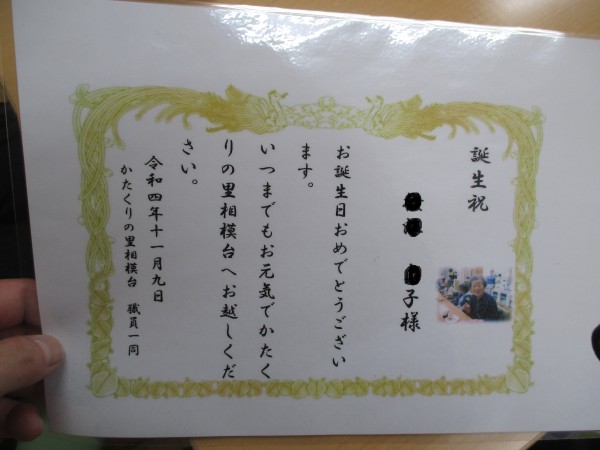 誕生祝
子様
お誕生日おめでとうござい
ます。
いつまでもお元気でかたく
りの里相模台へお越しくだ
さい。
令和四年十一月九日
かたくりの里相模台 職員一同